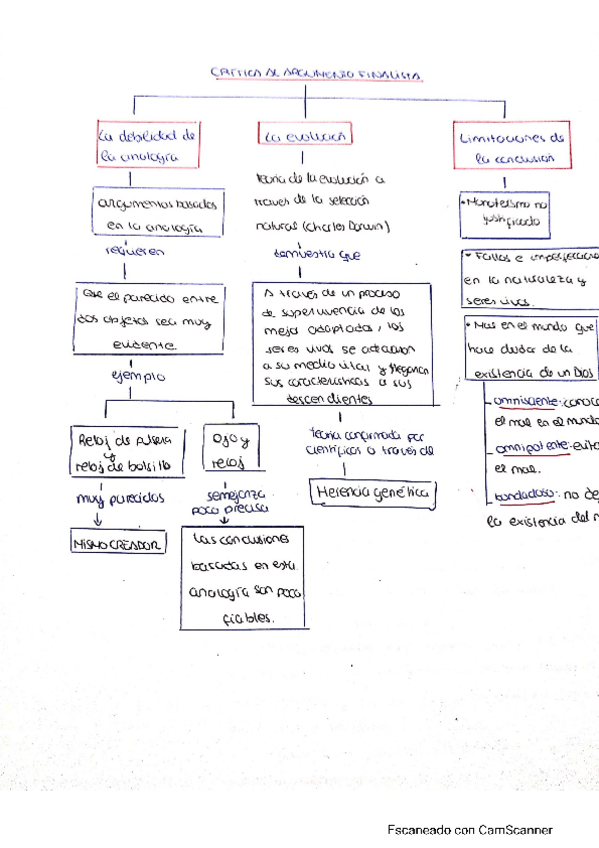 CRÍTICA AL ARGUMENTO FINALISTA
La debilidad de
la analogía
argumentos basados
en la analogía
requieren
Que el parecido entre
dos objetos sea muy
evidente.
ejemplo
Reloj de pulsera
y
reloj de bolsillo
muy parecidos
MISMO CREADOR
Ojo y
reloj
semejanza
poco precisa
Las conclusiones
basadas en esta
analogía son poco
fiables.
La evolución
teoría de la evolución a
traves de la selección
natural (Charles Darwin)
demuestra que
A través de un proceso
de supervivencia de los
mejor adaptados, los
seres vivos se adecuan
a su medio vital y
sus características a sus
descendientes
teoría confirmada por
científicos a través de
Herencia genética
Limitaciones de
la conclusión
• Monoteísmo no
justificado
• Fallos e imperfeccione
en la naturaleza y
seres vivos.
• Mas en el mundo que
hace dudar de la
existencia de un Dios
omnisciente: conoce
el mal en el mundo
omnipotente: evita
el mal.
bondadoso: no de
la existencia del m
Escaneado con CamScanner